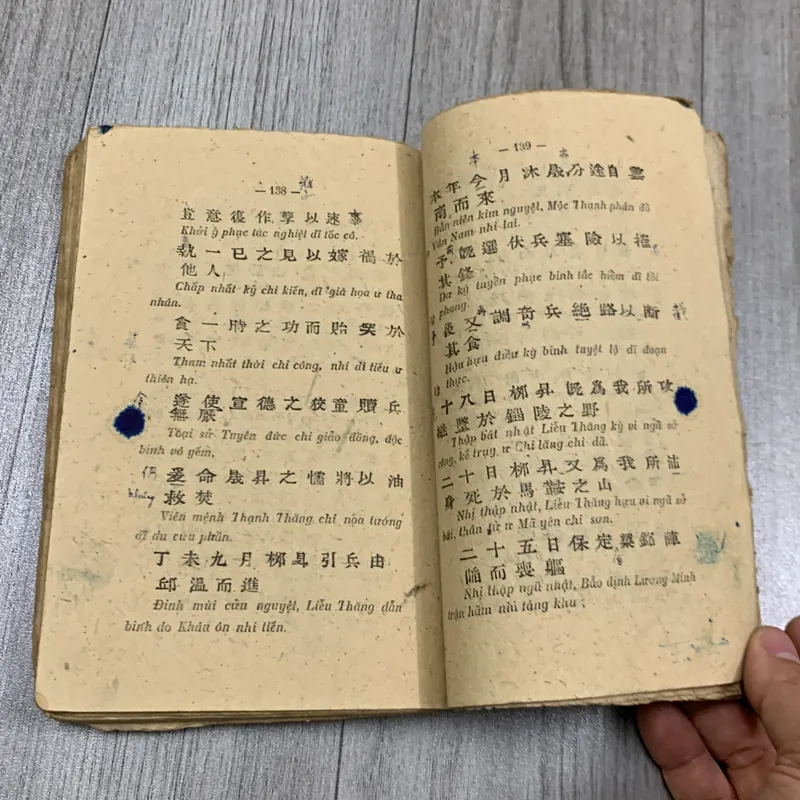 — 138 —
豈意復作孽以速辜
Khởi ý phục tác nghiệt dĩ tốc cô.
執一己之見以嫁禍於
他人
Chấp nhất kỷ chi kiến, dĩ giá họa ư tha
nhân.
貪一時之功而貽笑於
天下
Tham nhất thời chi công, nhi di tiếu ư
thiên hạ.
遂使宣德之狡童黷兵
無厭
Toại sử Tuyên đức chi giảo đồng, độc
binh vô yếm,
爰命晟昇之懦將以油
救焚
Viên mệnh Thạnh Thăng chi nọa tướng
dĩ du cứu phần.
丁未九月柳昇引兵由
邱溫而進
Đinh mùi cửu nguyệt, Liễu Thăng dẫn
binh do Khâu ôn nhi tiến.
— 139 —
本年今月沐晟分途自雲
南而來
Bản niên kim nguyệt, Mộc Thạnh phân đồ
Vân Nam nhi lai.
予既選伏兵塞險以摧
其鋒
Dư ký tuyển phục binh tắc hiểm dĩ tồi
phong.
後又調奇兵絕路以断
其食
Hậu hựu điều kỳ binh tuyệt lộ dĩ đoạn
thực.
十八日柳昇既為我所攻
繼墜於錙陵之野
Thập bát nhật Liễu Thăng ký vi ngã sở
công, kế trụy ư Chi lăng chi dã.
二十日柳昇又為我所
身死於馬鞍之山
Nhị thập nhật, Liễu Thăng hựu vi ngã sở
bại, thân tử ư Mã yên chi sơn.
二十五日保定梁銘陣
陷而喪軀
Nhị thập ngũ nhật, Bảo định Lương Minh
trận hãm nhi táng khu ;